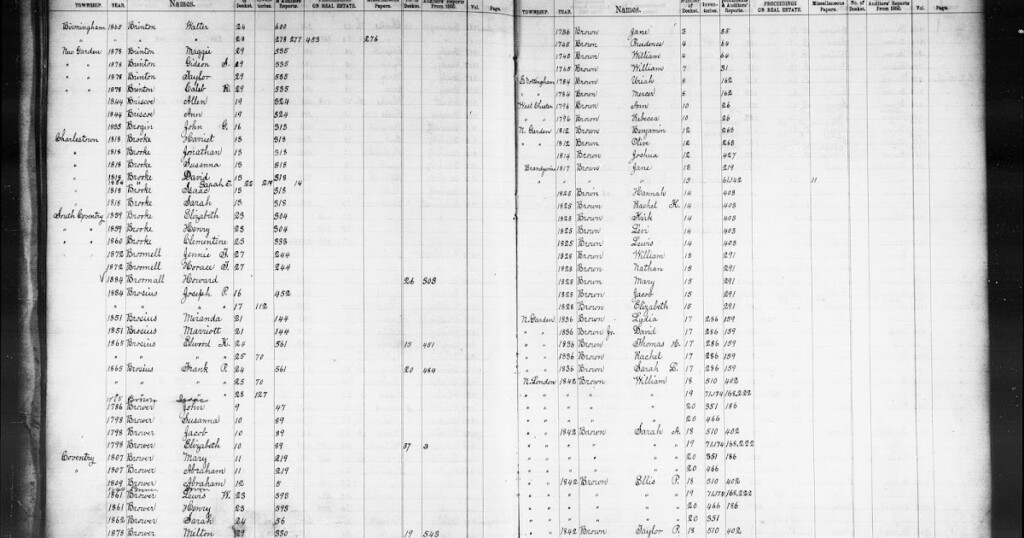 TOWNSHIP. YEAR. Names. Docket. & Auditors' Reports. OR REAL ESTATE. Miscellaneous Papers. No. of Docket. Auditors' Reports From 1882. Vol. Page.
Birmingham 1865 Brinton Walter 24 600
" " " " 24 278 277 453 276
New Garden 1878 Brinton Maggie 29 535
" " 1878 Brinton Gideon S. 29 535
" " 1878 Brinton Taylor 29 535
" " 1878 Brinton Caleb R. 29 535
1844 Briscoe Allen 19 324
1844 Briscoe Ann 19 324
1833 Brogin John G. 16 313
Charlestown 1818 Brooke Harriet 13 318
" 1818 Brooke Jonathan 13 318
" 1818 Brooke Susanna 13 318
" 1818 Brooke David 13 318
Sarah E. 22 14
" 1818 Brooke Isaac 13 318
" 1818 Brooke Sarah 13 318
South Coventry 1859 Brooke Elizabeth 23 504
" " 1859 Brooke Henry 23 504
" " 1860 Brooke Clementine 23 593
1872 Broomell Jennie H. 27 244
1872 Broomell Horace H. 27 244
1884 Broomall Howard 26 508
1884 Brosius Joseph P. 16 452
" " " 17 112
1851 Brosius Miranda 21 144
1851 Brosius Marriott 21 144
1865 Brosius Elwood K. 24 561 15 451
" " " 25 70
1865 Brosius Frank P. 24 561 20 484
" " " 25 70
" " " 28 127
1786 Brower John 9 47
1798 Brower Susanna 10 89
1798 Brower Jacob 10 89
1798 Brower Elizabeth 10 89 37 3
Coventry 1807 Brower Mary 11 219
" 1807 Brower Abraham 11 219
1809 Brower Abraham 12 5
1861 Brower Lewis W. 23 595
1861 Brower Henry 23 595
1862 Brower Sarah 24 56
1878 Brower Milton 29 330 19 545
TOWNSHIP. YEAR. Names. Docket. Inventories. & Auditors' Reports. PROCEEDINGS OR REAL ESTATE. Miscellaneous Papers. No. of Docket. Auditors' Reports From 1882. Vol. Page.
1736 Brown Jane 3 55
1745 Brown Prudence 4 64
1745 Brown William 4 64
1765 Brown William 7 31
E. Nottingham 1784 Brown Uriah 8 162
" " 1784 Brown Mercer 8 162
West Chester 1796 Brown Ann 10 26
" " 1796 Brown Rebecca 10 26
N. Garden 1812 Brown Benjamin 12 265
" " 1812 Brown Olive 12 265
1814 Brown Joshua 12 427
Brandywine 1817 Brown Jane 13 219
" " " " 13 61,142 11
1825 Brown Hannah 14 403
1825 Brown Rachel K. 14 403
1825 Brown Kirk 14 403
1825 Brown Levi 14 403
1825 Brown Lewis 14 403
1828 Brown William 15 291
1828 Brown Nathan 15 291
1828 Brown Mary 15 291
1828 Brown Jacob 15 291
1828 Brown Elizabeth 15 291
N. Garden 1836 Brown Lydia 17 286 159
" " 1836 Brown Jr. David 17 286 159
" " 1836 Brown Thomas 17 286 159
" " 1836 Brown Rachel 17 286 159
" " 1836 Brown Sarah E. 17 286 159
N. London 1842 Brown William 18 510 402
" " " " " 19 71,174 168,222
" " " " " 20 351 186
" " " " " 20 466
" " 1842 Brown Sarah A. 18 510 402
" " " " " 19 71,174 168,222
" " " " " 20 351 186
" " " " " 20 466
" " 1842 Brown Ellis P. 18 510 402
" " " " " 19 71,174 168,222
" " " " " 20 466 186
" " " " " 20 351
" " 1842 Brown Taylor P. 18 510 402